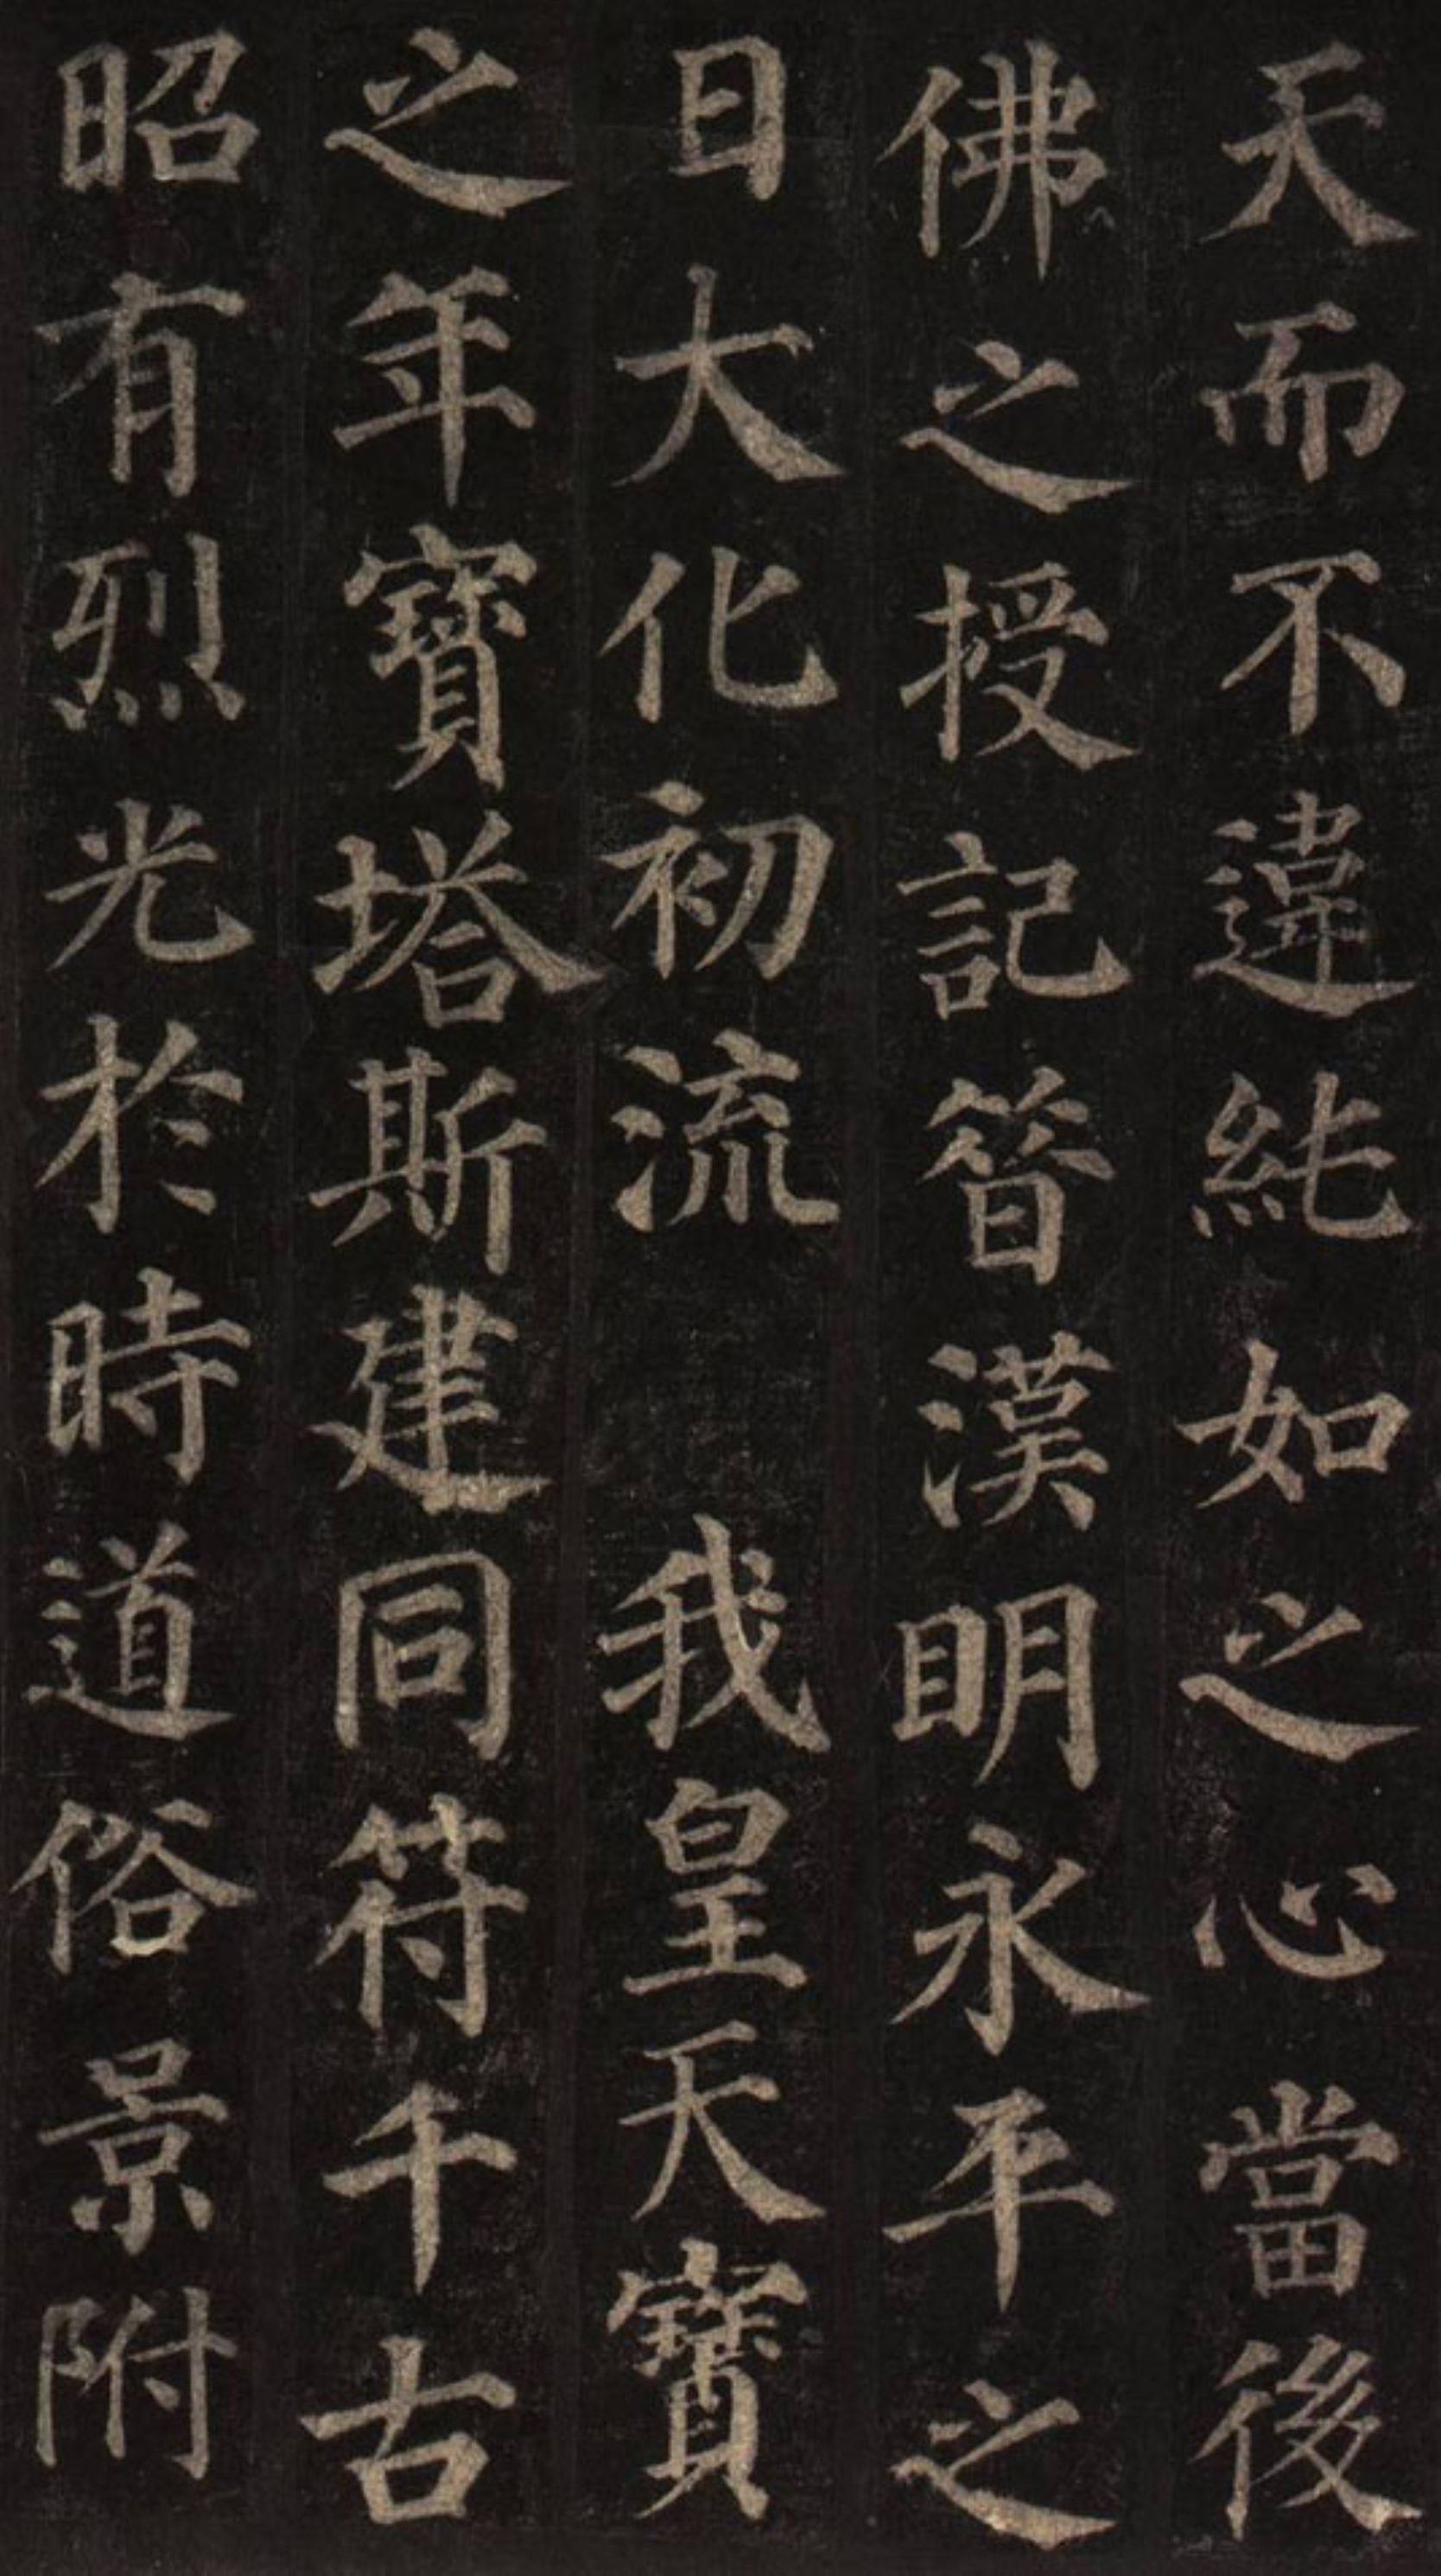 天而不違純如之心當後
佛之授記昔漢明永平之
日大化初流我皇天寶
之年寶塔斯建同符千古
昭有烈光於時道俗景附